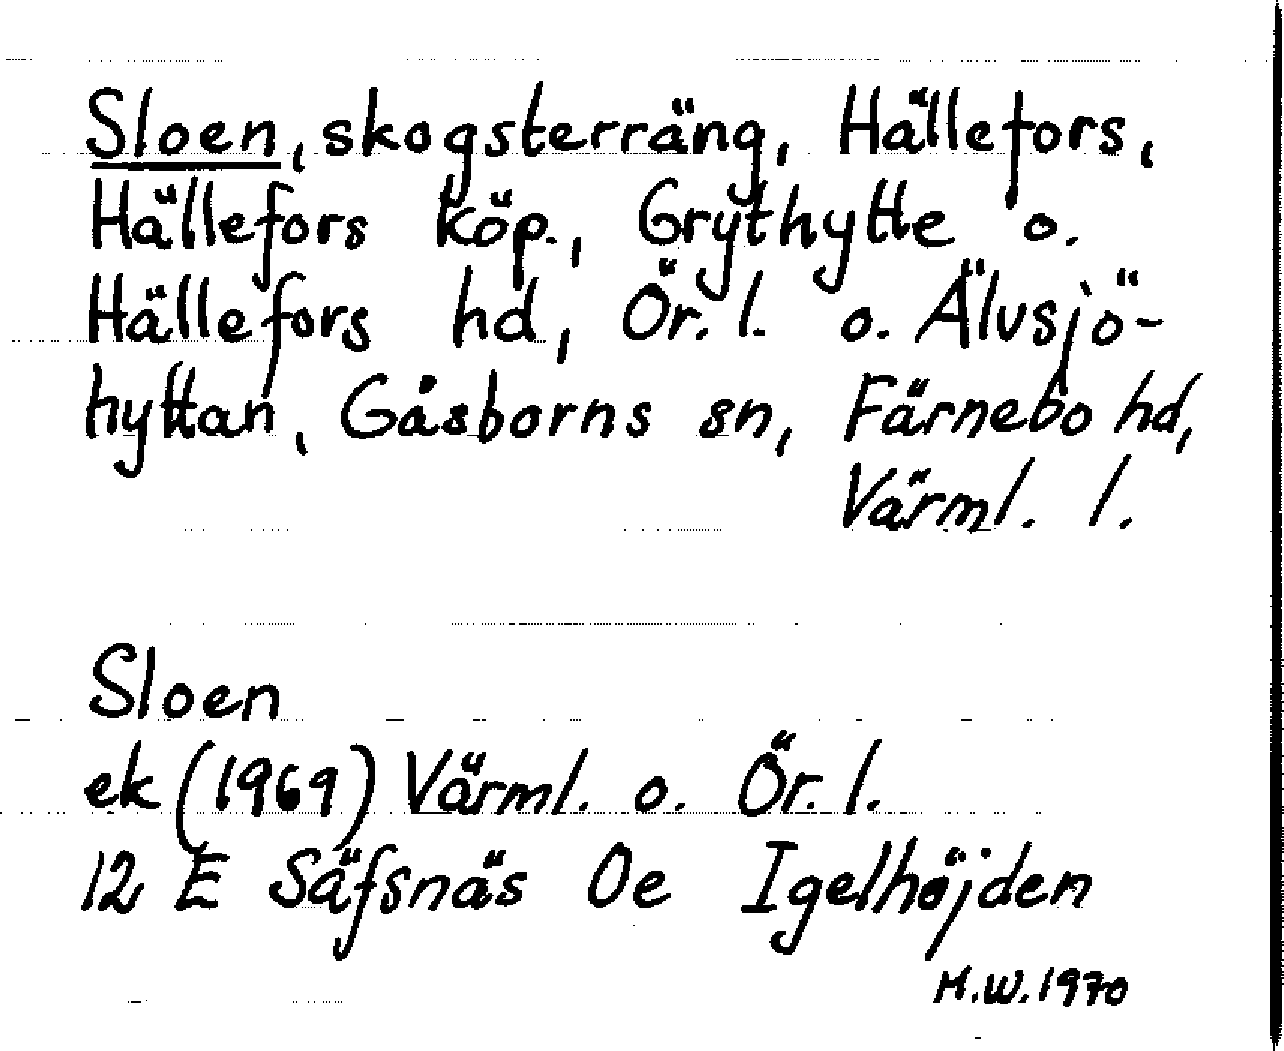 Sloen, skogsterräng, Hällefors,
Hällefors köp., Grythytte o.
Hällefors hd, Ör. l. o. Älvsjö-
hyttan, Gåsborns sn, Färnebo hd,
Värml. l.
Sloen
ek (1969) Värml. o. Ör. l.
12 E Säfsnäs 0e Igelhöjden
M.W. 1970